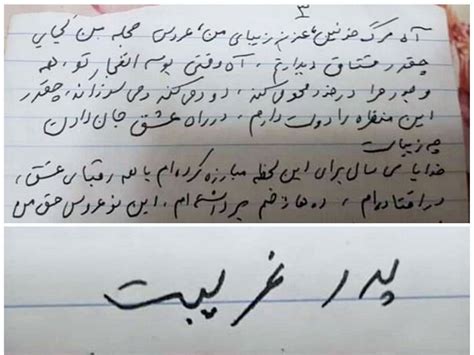 ۳
آه مرگ خونین، عزیز زیبای من، عروس حجله من کجایی
چقدر مشتاق دیدارتم، آه وقتی بوسه انفجار تو، همه
وجود مرا در خود محو می‌کند، دود می‌کند و می‌سوزاند، چقدر
این منظره را دوست دارم، در راه عشق جان دادن
چه زیباست
خدایا سی سال برای این لحظه مبارزه کرده‌ام با همه رقبای عشق،
درافتاده‌ام، ده‌ها زخم برداشته‌ام، این نوعروس حق من
پدر غریبت